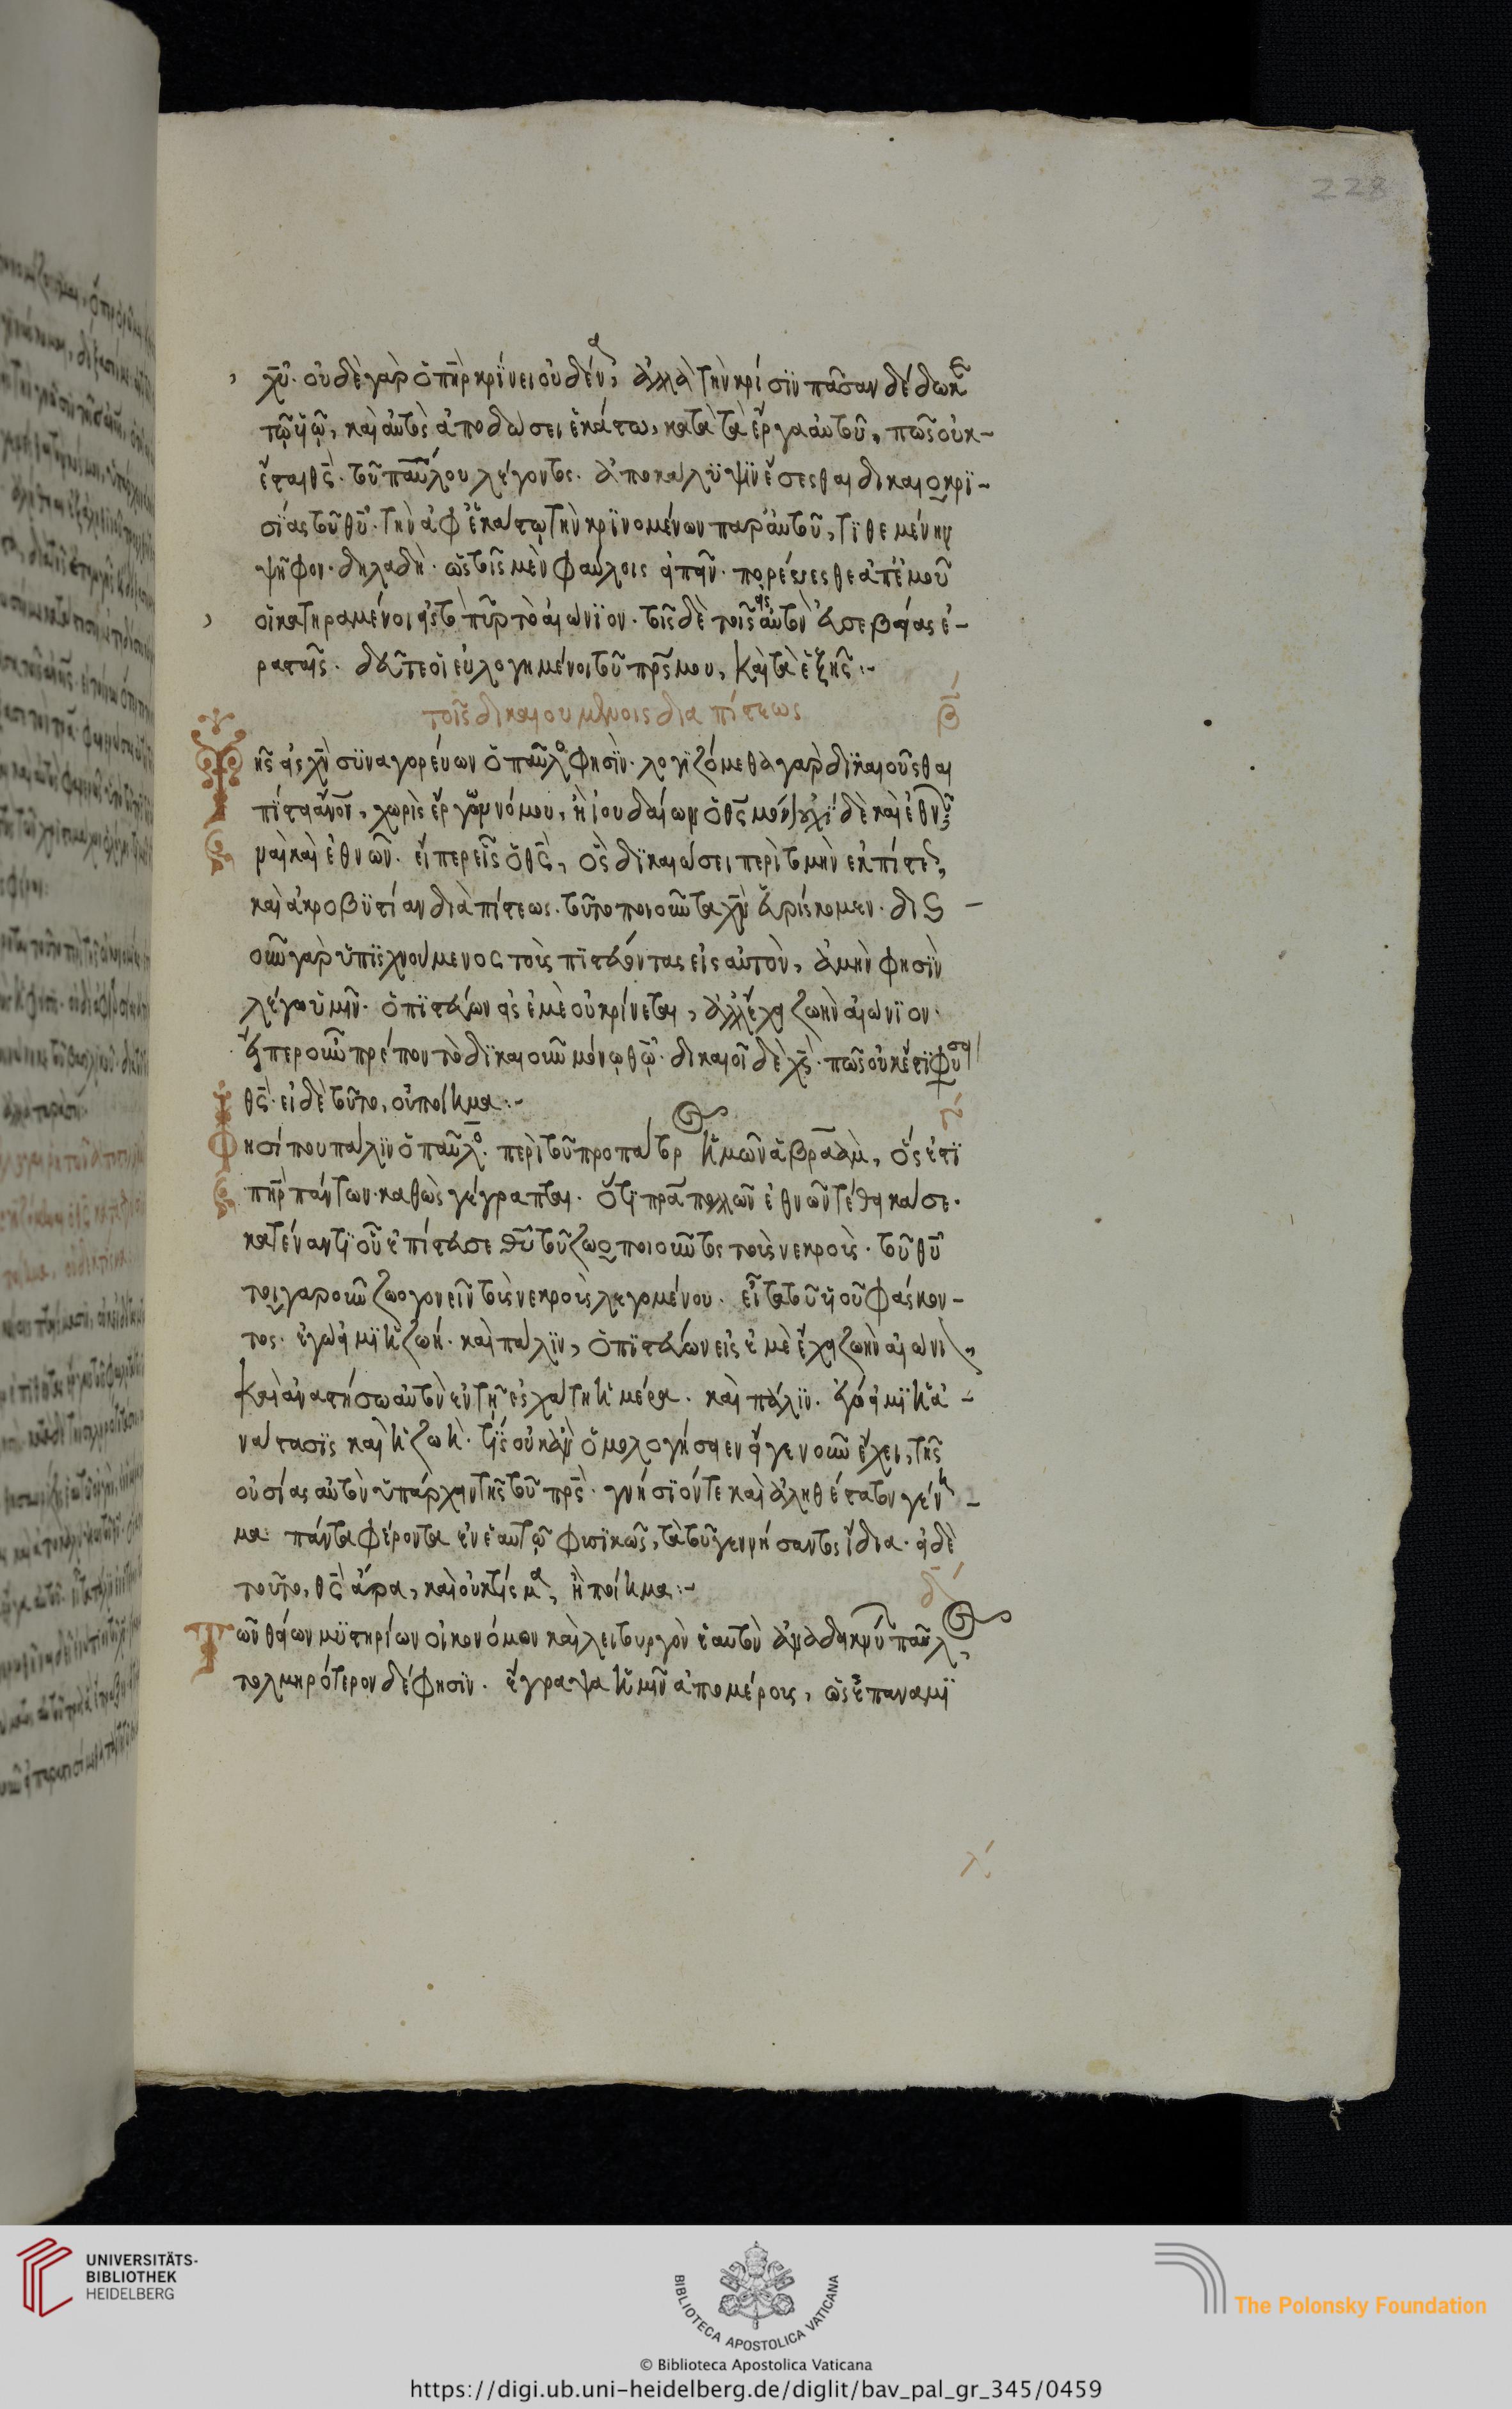 228
χυ̅· οὐδὲ γὰρ ὁ πη̅ρ κρίνει οὐδένα, ἀλλὰ τὴν κρίσιν πᾶσαν δέδωκε
τῷ υἱῷ, καὶ αὐτὸς ἀποδώσει ἑκάστω, κατὰ τὰ ἔργα αὐτοῦ, πῶς οὐκ-
ἔσται θς̅· τοῦ παύλου λέγοντος· ἀποκάλυψιν ἔσεσθαι δικαιοκρι-
σίας τοῦ θυ̅· τὴν ἀφ' ἑκάστω τὴν κρινομένων παρ' αὐτοῦ, τιθεμένην
ψῆφον· δηλαδὴ· ὡς τοῖς μὲν φαύλοις εἰπεῖν· πορεύεσθε ἀπ' ἐμοῦ
οἱ κατηραμένοι εἰς τὸ πῦρ τὸ αἰώνιον· τοῖς δὲ τοῖς εἰς αὐτὸν εὐσεβείας ἐ-
ρασταῖς· δεῦτε οἱ εὐλογημένοι τοῦ πρς̅ μου, καὶ τὰ ἑξῆς:-
τοῖς δικαιουμένοις δια πίστεως β̅
Τῆς εἰς χν̅ συναγορεύων ὁ παῦλος φησὶν· λογιζόμεθα γὰρ δικαιοῦσθαι
πίστει ἄνον̅, χωρὶς ἔργων νόμου, ἢ ἰουδαίων ὁ θς̅ μόνον οὐχὶ δὲ καὶ ἐθνῶν
ναὶ καὶ ἐθνῶν· εἴπερ εἷς ὁ θς̅, ὃς δικαιώσει περὶτομὴν ἐκ πίστεως,
καὶ ἀκροβυστίαν διὰ πίστεως· τοῦτο ποιοῦντα χν̅ εὑρίσκομεν· δι ς -
οῦν γὰρ ὑπισχνούμενος τοὺς πιστεύοντας εἰς αὐτὸν, ἀμὴν φησὶν
λέγω ὑμῖν· ὁ πιστεύων εἰς ἐμὲ οὐ κρίνεται, ἀλλ' ἔχει ζωὴν αἰώνιον·
εἴπερ οὖν πρέπον τὸ δικαιοῦν μόνω θῷ̅· δικαιοῖ δὲ χς̅· πῶς οὐκ ἔστι φύσει
θς̅· εἰ δὲ τοῦτο, οὐ ποίημα:-
γ̅
Φησί που πάλιν ὁ παῦλος· περὶ τοῦ προπάτορος ἡμῶν ἀβραάμ, ὅς ἐστι
πη̅ρ πάντων· καθὼς γέγραπται· ὅτι πρα̅ πολλῶν ἐθνῶν τέθεικά σε·
κατέναντι οὗ ἐπίστευσε θυ̅ τοῦ ζωοποιοῦντος τοὺς νεκροὺς· τοῦ θυ̅
τοιγαροῦν ζωογονεῖν τοὺς νεκροὺς λεγομένου· εἶτα τοῦ υἱοῦ φάσκον-
τος· ἐγώ εἰμι ἡ ζωή· καὶ πάλιν, ὁ πιστεύων εἰς ἐμὲ ἔχει ζωὴν αἰώνιον,
καὶ ἀναστήσω αὐτὸν ἐν τῇ ἐσχάτη ἡμέρα· καὶ πάλιν· ἐγώ εἰμι ἡ ἀ-
νάστασις καὶ ἡ ζωή· τίς οὐκ ἂν ὁμολογήσειεν εἴγε νοῦν ἔχει, τῆς
οὐσίας αὐτὸν ὑπάρχειν τῆς τοῦ πρς̅· γνήσιόν τε καὶ ἀληθέστατον γέννη-
μα· πάντα φέροντα ἐν ἑαυτῷ φυσικῶς, τὰ τοῦ γεννήσαντος ἴδια· εἰ δὲ
τοῦτο, θς̅ ἄρα, καὶ οὐ κτίσμα, ἢ ποίημα:-
δ̅
Τῶν θείων μυστηρίων οἰκονόμον καὶ λειτουργὸν ἑαυτὸν ἀναδεικνύων παῦλος,
τολμηρότερον δέ φησὶν· ἔγραψα ἡμῖν ἀπὸ μέρους, ὡς ἐπαναμι
λ̅
UNIVERSITÄTS-
BIBLIOTHEK
HEIDELBERG
BIBLIOTECA APOSTOLICA VATICANA
© Biblioteca Apostolica Vaticana
The Polonsky Foundation
https://digi.ub.uni-heidelberg.de/diglit/bav_pal_gr_345/0459